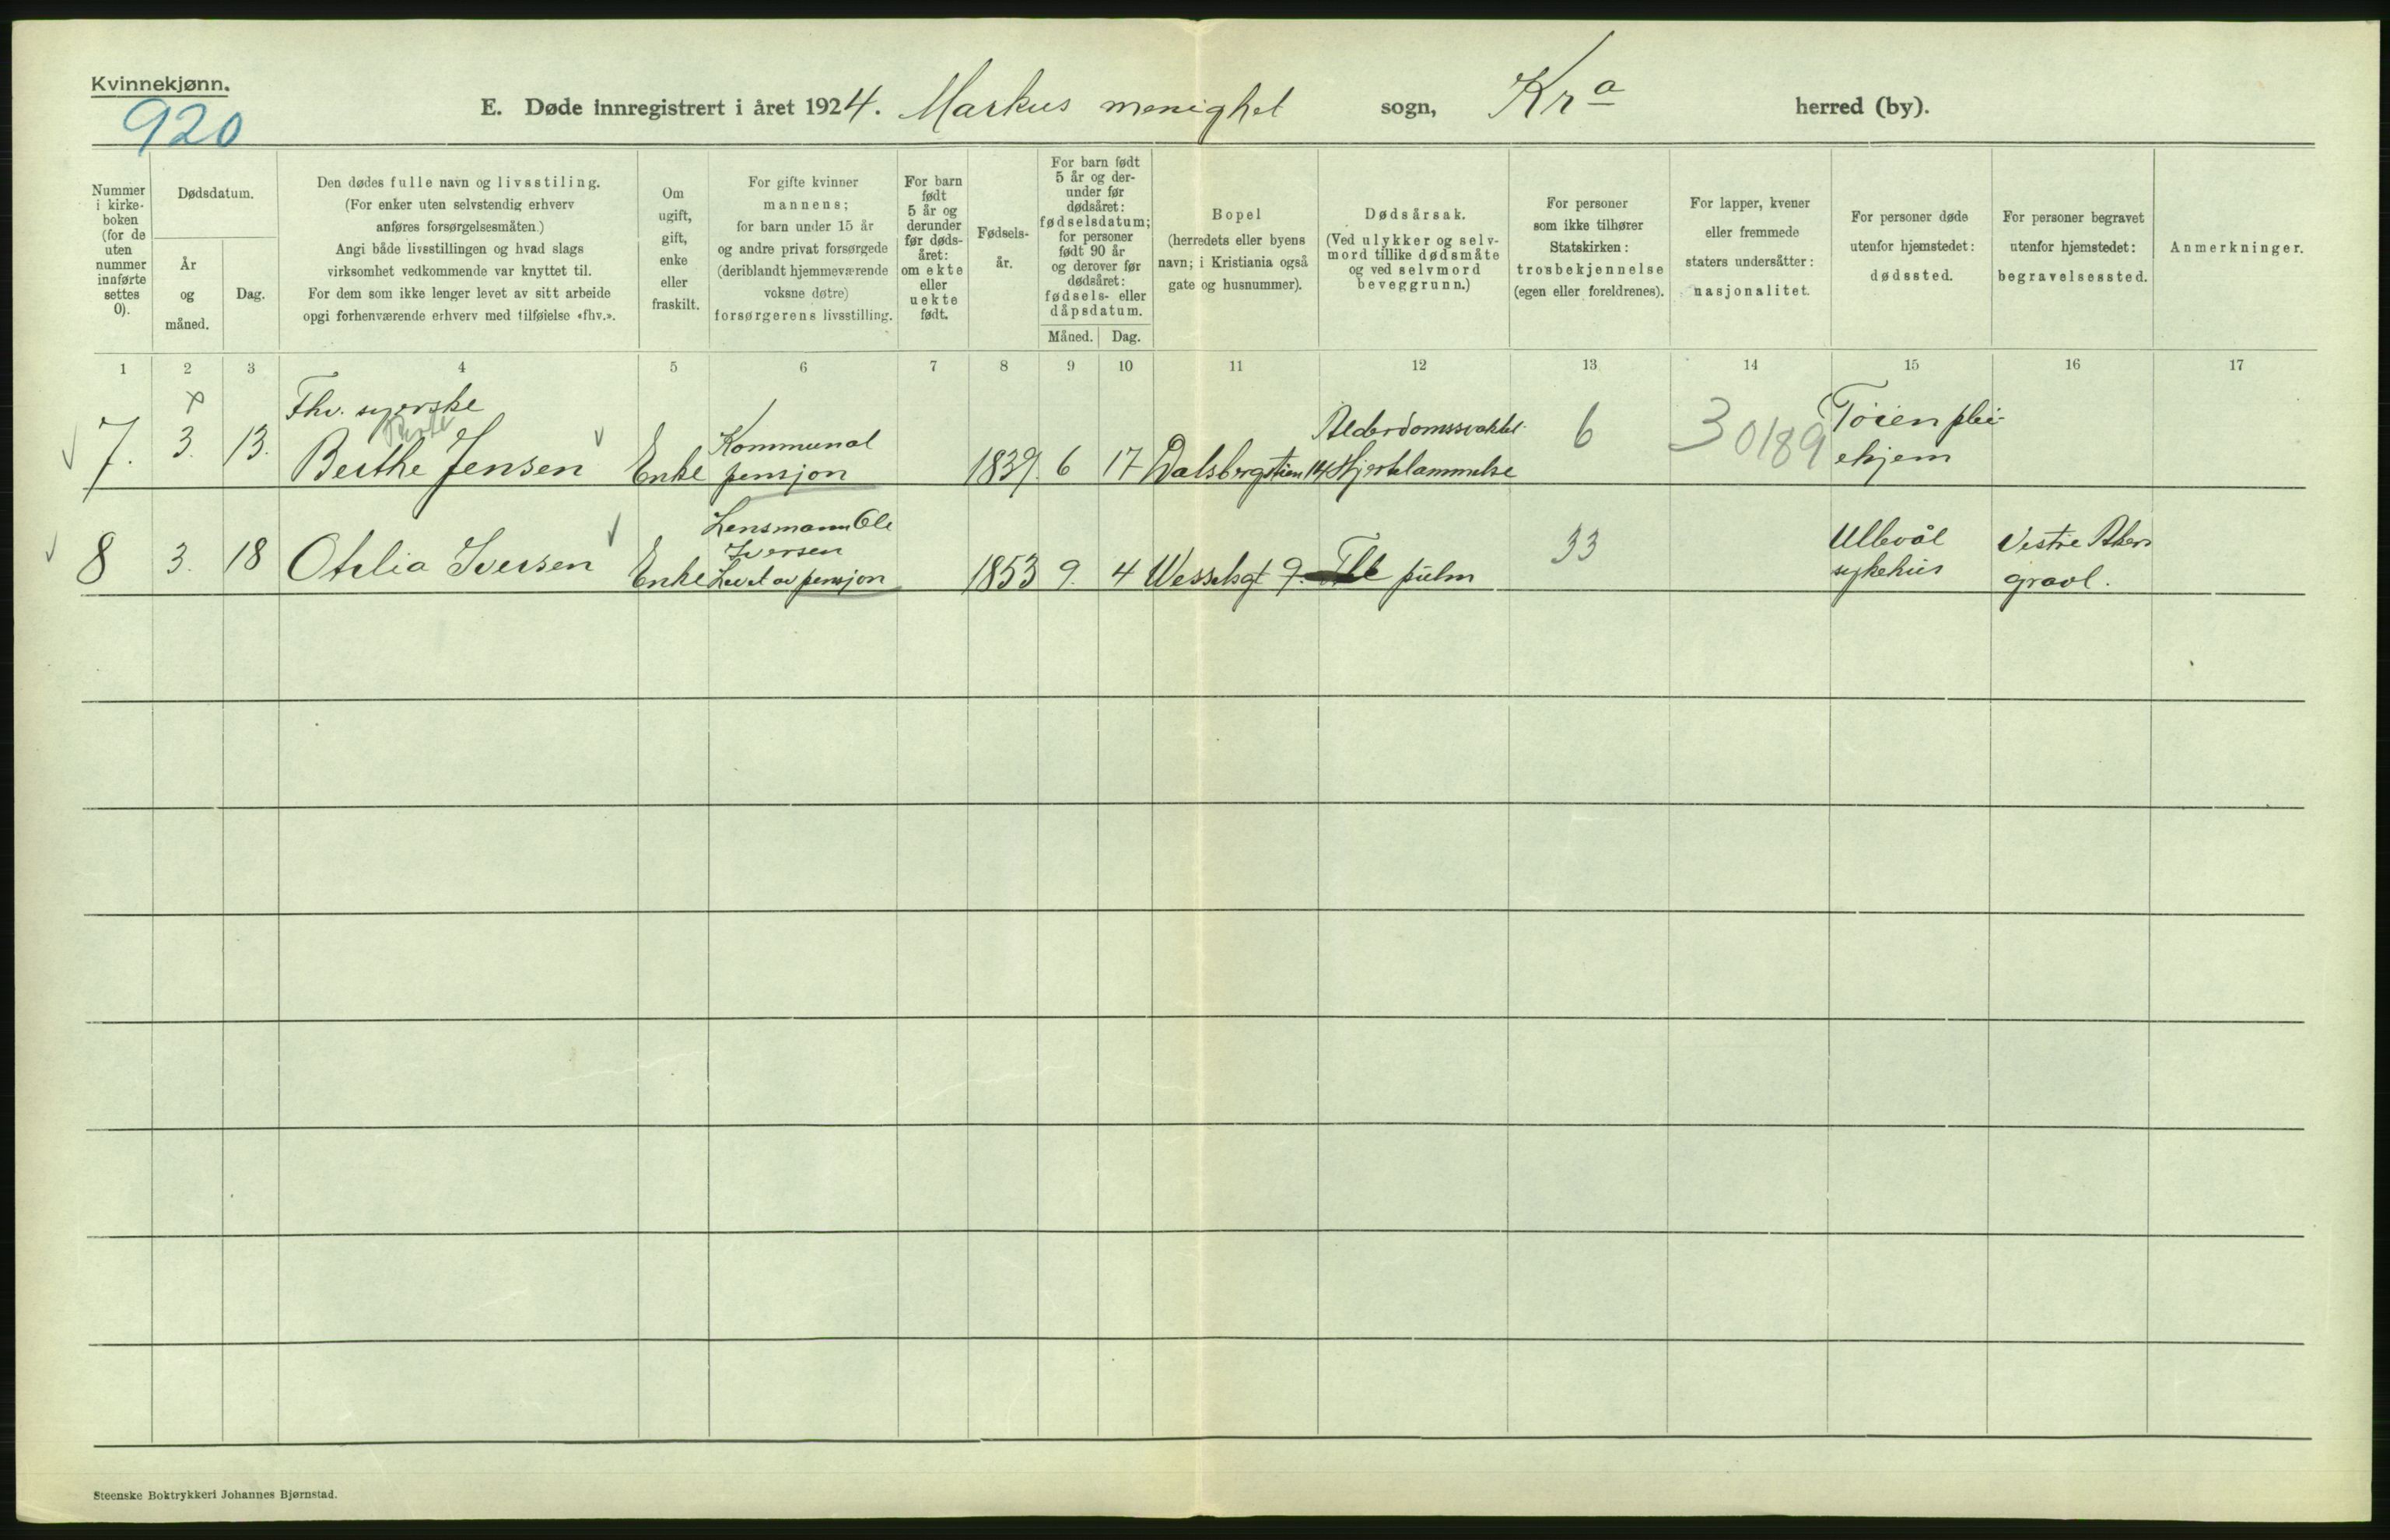 Kvinnekjønn.
920
E. Døde innregistrert i året 1924. Markus menighet sogn, Kra herred (by).
Nummer i kirke- boken (for de uten nummer innførte settes 0).
Dødsdatum.
År og måned.
Dag.
Den dødes fulle navn og livsstiling.
(For enker uten selvstendig erhverv
anføres forsørgelsesmåten.)
Angi både livsstillingen og hvad slags
virksomhet vedkommende var knyttet til.
For dem som ikke lenger levet av sitt arbeide
opgi forhenværende erhverv med tilføielse «fhv.».
Om ugift, gift, enke eller fraskilt.
For gifte kvinner
mannens;
for barn under 15 år
og andre privat forsørgede
(deriblandt hjemmeværende
voksne døtre)
forsørgerens livsstilling.
For barn født 5 år og derunder før døds- året: om ekte eller uekte født.
Fødsels- år.
For barn født 5 år og der- under før dødsåret: fødselsdatum; for personer født 90 år og derover før dødsåret: fødsels- eller dåpsdatum.
Måned. Dag.
Bopel
(herredets eller byens
navn; i Kristiania også
gate og husnummer).
Dødsårsak.
(Ved ulykker og selv-
mord tillike dødsmåte
og ved selvmord
beveggrunn.)
For personer
som ikke tilhører
Statskirken:
trosbekjennelse
(egen eller foreldrenes).
For lapper, kvener
eller fremmede
staters undersåtter:
nasjonalitet.
For personer døde
utenfor hjemstedet:
dødssted.
For personer begravet
utenfor hjemstedet:
begravelsessted.
Anmerkninger.
1 2 3 4 5 6 7 8 9 10 11 12 13 14 15 16 17
Fhv. syerske
7. 3. 13. Berthe Jensen Enke Kommunal pensjon 1839. 6 17 Dalsbergstien 14 Alderdomssvakhet Hjertelammelse 6 30189 Tøien plei- ehjem
8 3. 18 Otelia Iversen Enke Lensmann Ole Iversen Levet av pensjon 1853 9. 4 Wesselsgt 9. Tbc pulm 33 Ullevål sykehus Vestre Akers gravl.
Steenske Boktrykkeri Johannes Bjørnstad.